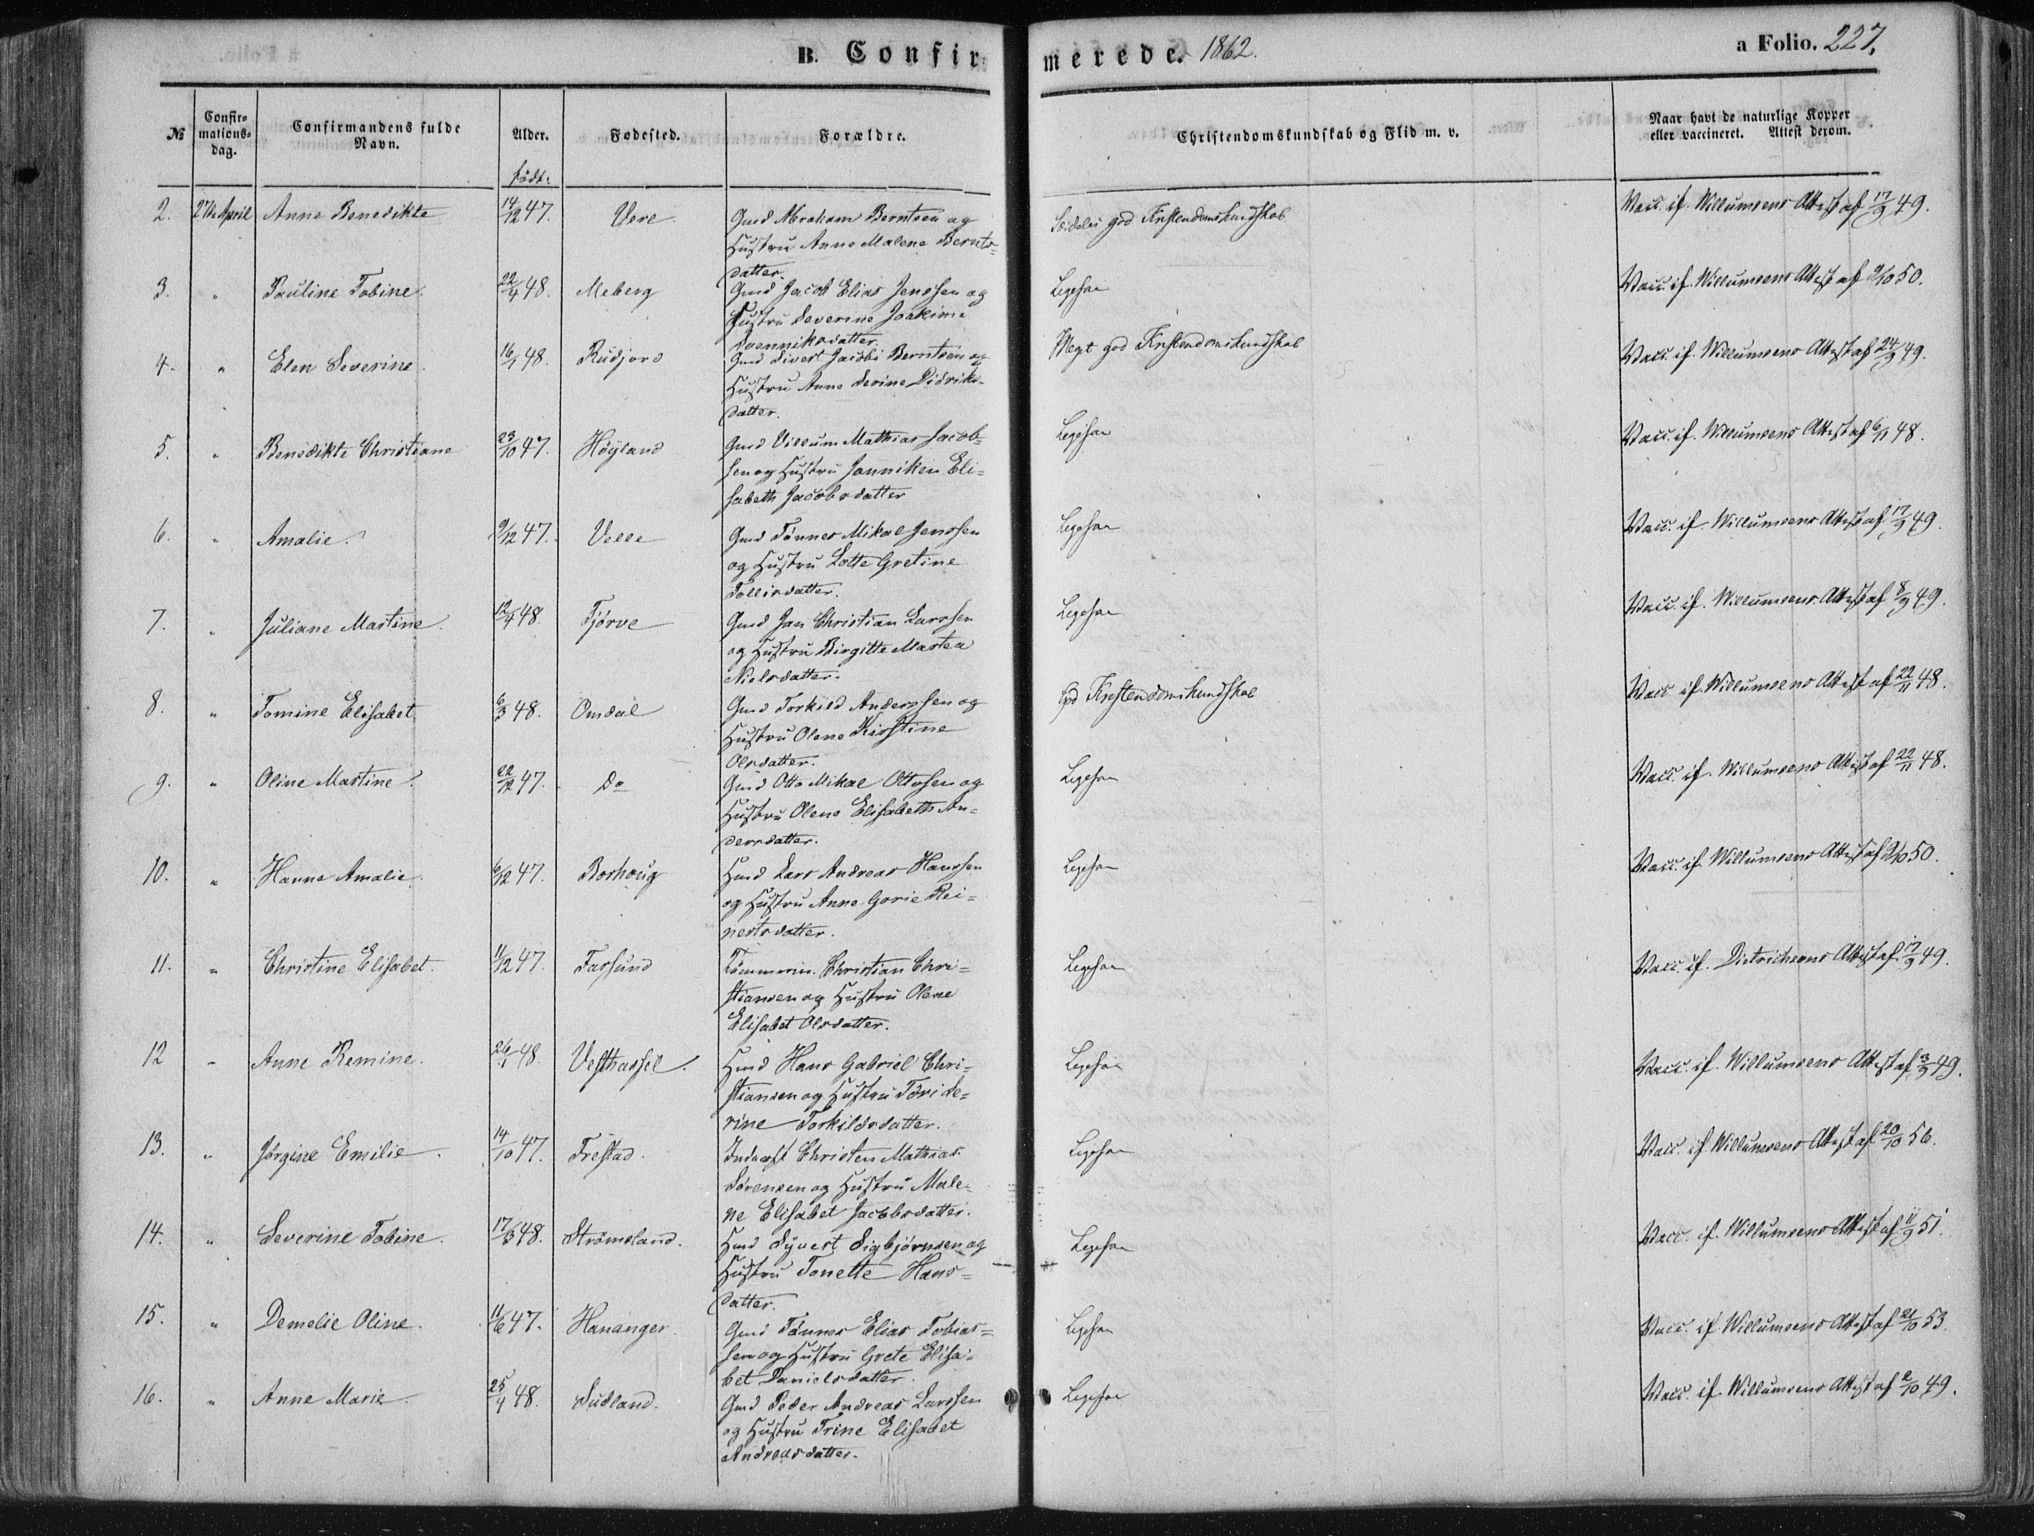 B. Confirmerede. 1862.
a Folio. 227.
№
Confirmations-dag.
Confirmandens fulde Navn.
Alder.
født.
Fødested.
Forældre.
Christendomskundskab og Flid m. v.
Naar havt de naturlige Kopper eller vaccineret. Attest derom.
2. 27de April Anne Benedikte 14/12 47. Vere Gmd Abraham Berntsen og Særdeles god Kristendomskundskab Vacc. if. Willumsens Attest af 17/9 49.
Hustru Anne Malene Bernts-
datter.
3. " Pauline Tobine. 22/4 48. Meberg Gmd Jacob Elias Jenssen og Ligesaa Vacc. if. Willumsens Attest af 2/10 50.
Hustru Severine Joakime
Svenniksdatter
4. " Elen Severine. 16/1 48. Rudjord Gmd Sivert Jacobi Berntsen og Meget god Kristendomskundskab Vacc. if. Willumsens Attest af 24/9 49.
Hustru Anne Serine Didriks-
datter.
5. " Benedikte Christiane 23/10 47. Høyland Gmd Villum Mathias Jacob- Ligesaa Vacc. if. Willumsens Attest af 6/11 48.
sen og Hustru Janniken Eli-
sabeth Jacobsdatter
6. " Amalie. 9/12 47. Velle Gmd Tønnes Mikal Jenssen Ligesaa Vacc. if. Willumsens Attest af 17/9 49.
og Hustru Lotte Gretine
Tollisdatter.
7. " Juliane Martine. 12/4 48. Tjørve Gmd Jan Christian Larssen Ligesaa Vacc. if. Willumsens Attest af 8/9 49.
og Hustru Birgitte Martea
Nielsdatter.
8. " Tomine Elisabet. 6/3 48. Omdal Gmd Torkild Anderssen og God Kristendomskundskab Vacc. if. Willumsens Attest af 22/11 48.
Hustru Olene Kirstine
Olsdatter.
9. " Oline Martine. 22/12 47. Do Gmd Otto Mikal Ottosen og Ligesaa Vacc. if. Willumsens Attest af 22/11 48.
Hustru Olene Elisabeth An-
dersdatter.
10. " Hanne Amalie. 6/12 47. Borhoug Hmd Lars Andreas Hanssen Ligesaa Vacc. if. Willumsens Attest af 2/10 50.
og Hustru Anne Gorie Rei-
nertsdatter.
11. " Christine Elisabet. 11/12 47. Farsund Tømmerm. Christian Chri- Ligesaa Vacc. if. Dietrichsons Attest af 17/9 49.
stiansen og Hustru Olene
Elisabet Olsdatter.
12 " Anne Remine. 26/1 48. Vesthassel. Hmd Hans Gabriel Chri- Ligesaa Vacc. if. Willumsens Attest af 3/9 49.
stiansen og Hustru
rine Torkildsdatter.
13. " Jørgine Emilie. 14/10 47. Frestad. Inderst Christen Mathias Ligesaa Vacc. if. Willumsens Attest af 20/10 56.
Sørensen og Hustru Male-
ne Elisabet Jacobsdatter.
14. " Severine Tobine. 17/3 48. Strømsland. Hmd Syvert Sigbjørnsen og Ligesaa Vacc. if. Willumsens Attest af 11/9 51.
Hustru Tonette Hans-
datter.
15. " Demelie Oline. 11/6 47. Hananger. Gmd Tønnes Elias Tobias- Ligesaa Vacc. if. Willumsens Attest af 21/10 53.
sen og Hustru Grete Elisa-
bet Danielsdatter.
16. " Anne Marie. 25/4 48. Sudland. Gmd Peder Andreas Larssen Ligesaa Vacc. if. Willumsens Attest af 2/10 49.
og Hustru Trine Elisabet
Andreasdatter.